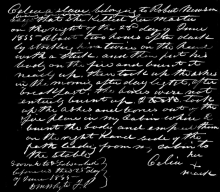 Celia a slave belonging to Robert Newsom
says that she killed her Master
on the night of the 23rd day of June
1855 about two hours after dark
by striking him twice on the head
with a stick and then put his
body on the fire and burnt it
nearly up then took up the ashes
in the morning after daylight after
breakfast the bones were not
entirely burnt up I took
up the ashes and bones out of the
fire place in my Cabin where I
burnt the body and emptied them
on the right hand side of the
path leading from my cabin to
the stable
Celia
Sworn to & subscribed
before me this 25 day
of June